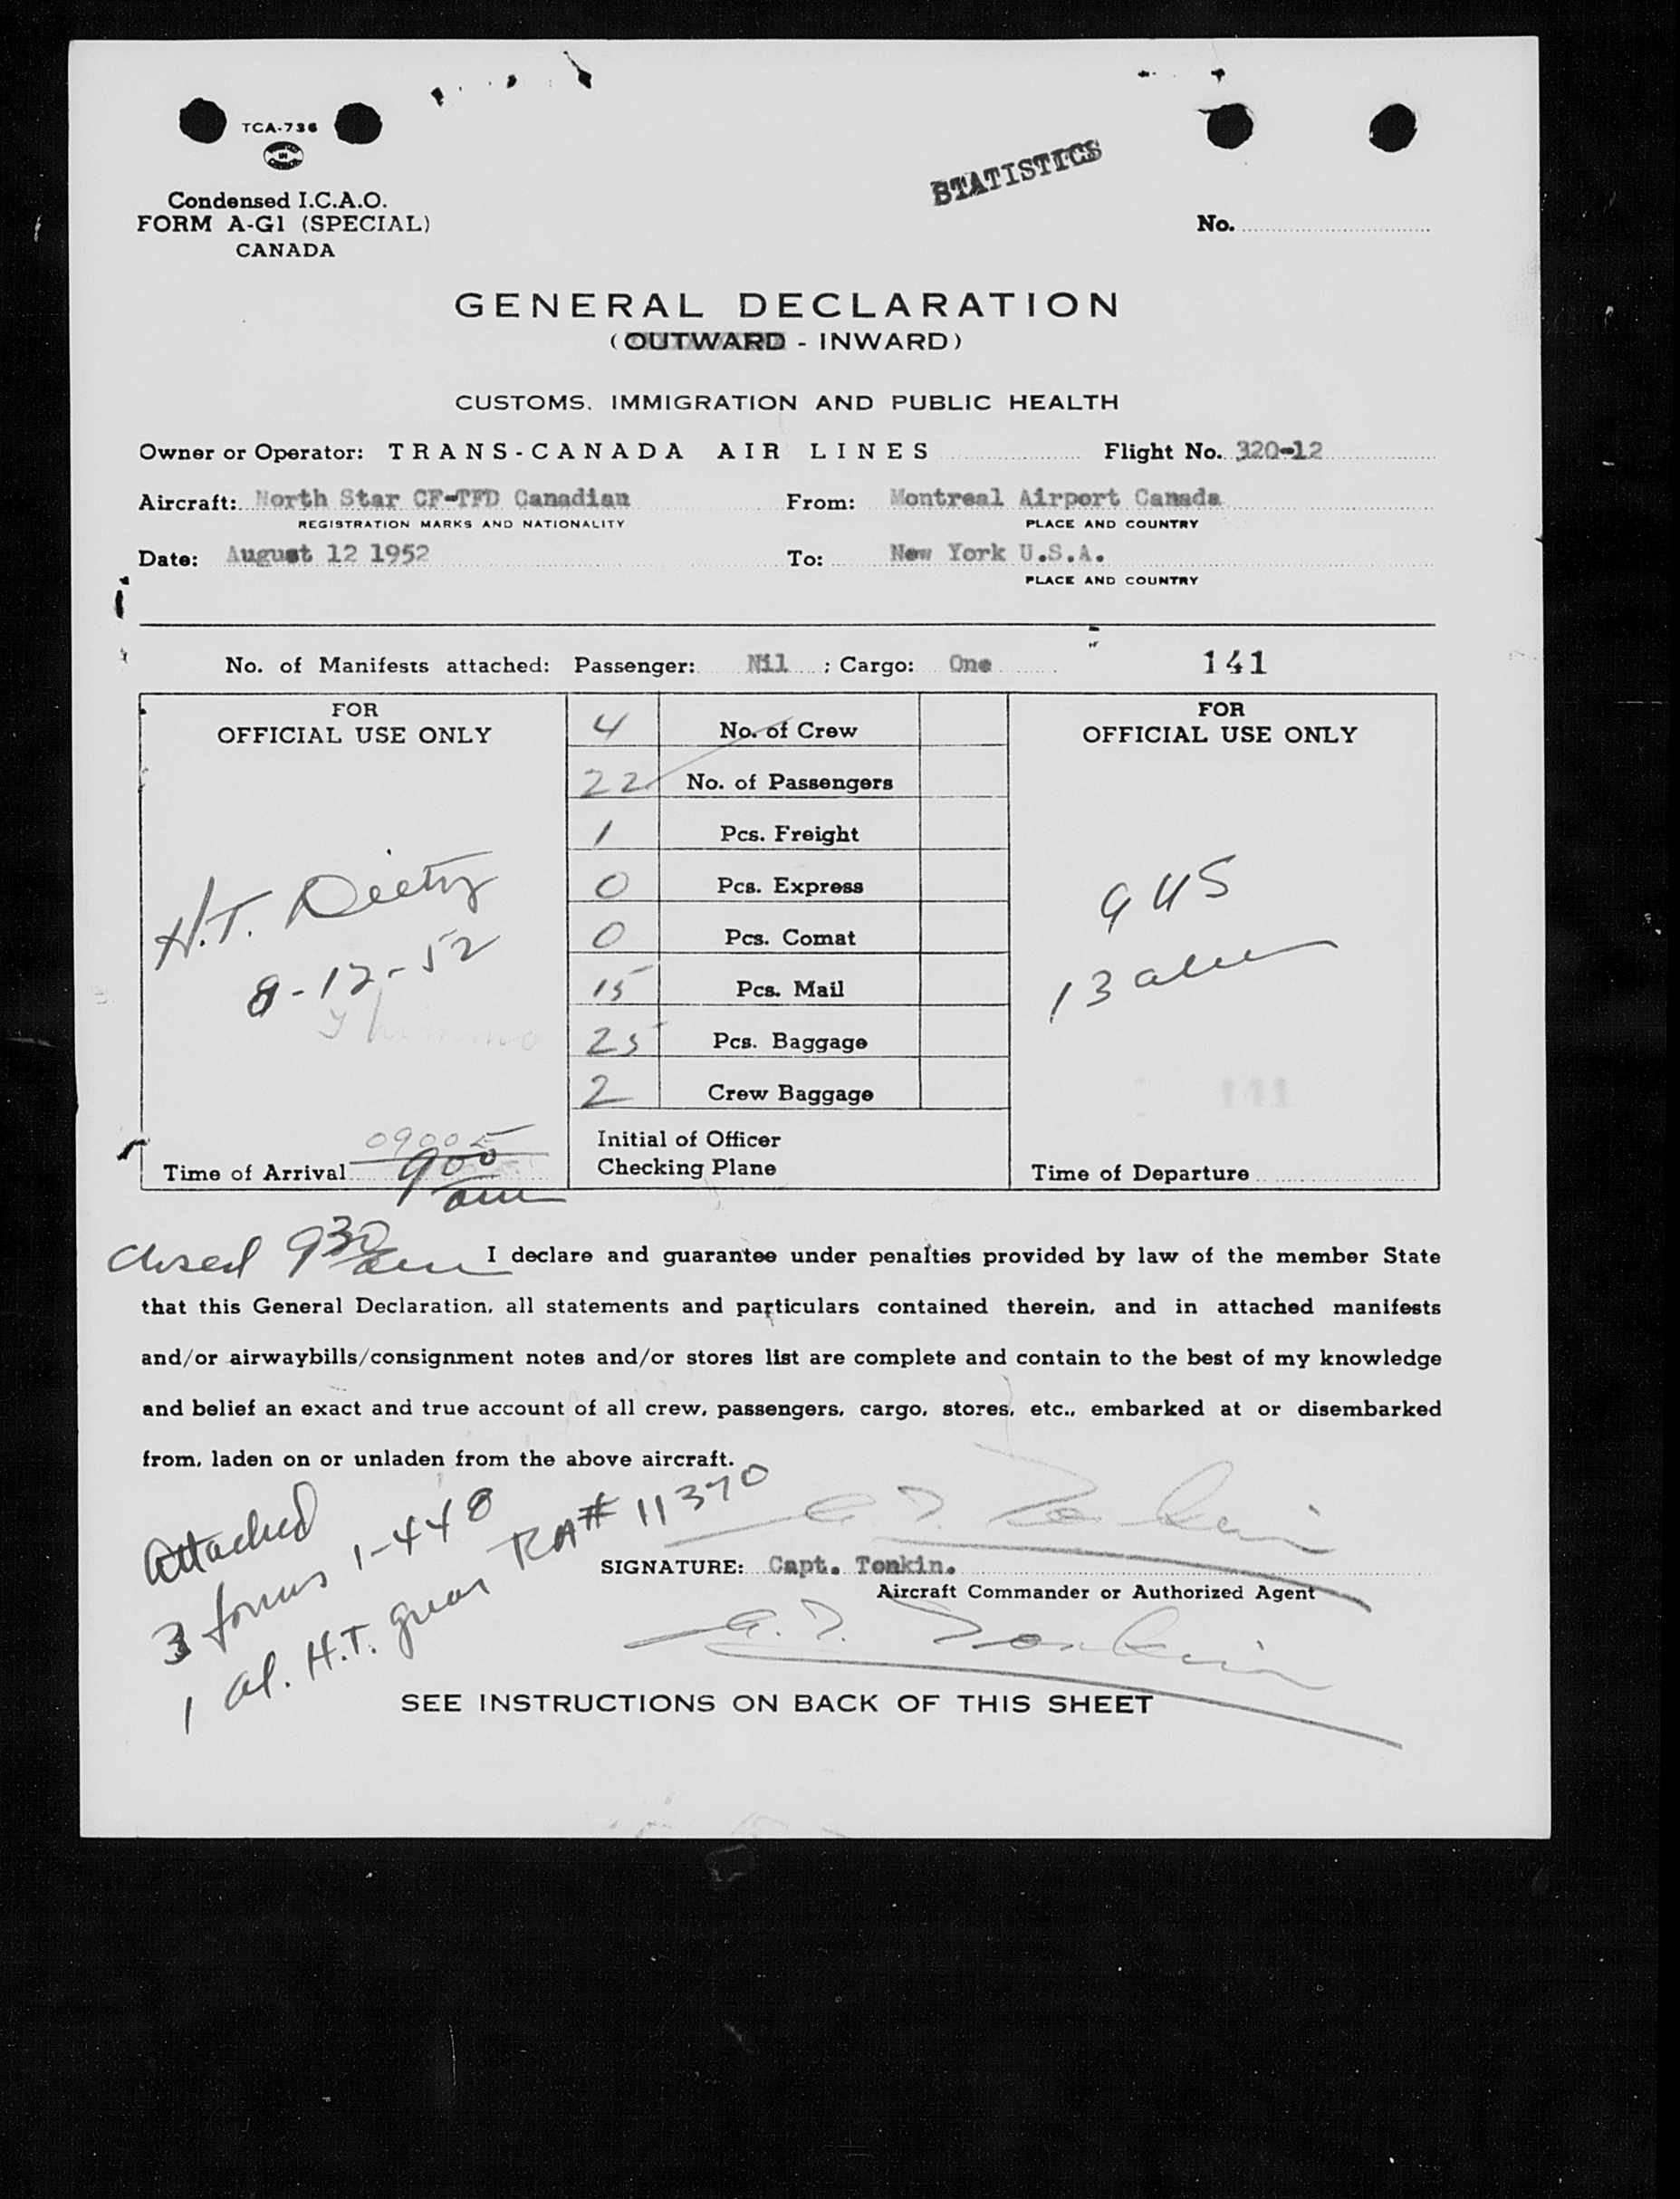 TCA-736
STATISTICS
Condensed I.C.A.O.
FORM A-G1 (SPECIAL)
CANADA
No.
GENERAL DECLARATION
(OUTWARD - INWARD)
CUSTOMS, IMMIGRATION AND PUBLIC HEALTH
Owner or Operator: TRANS-CANADA AIR LINES Flight No. 320-12
Aircraft: North Star CF-TFD Canadian From: Montreal Airport Canada
REGISTRATION MARKS AND NATIONALITY PLACE AND COUNTRY
Date: August 12 1952 To: New York U.S.A.
PLACE AND COUNTRY
No. of Manifests attached: Passenger: Nil ; Cargo: One 141
FOR
OFFICIAL USE ONLY
H.T.
8-12-52
09005
Time of Arrival 900
am
4 No. of Crew
22 No. of Passengers
1 Pcs. Freight
0 Pcs. Express
0 Pcs. Comat
15 Pcs. Mail
25 Pcs. Baggage
2 Crew Baggage
Initial of Officer
Checking Plane
FOR
OFFICIAL USE ONLY
9 US
13 alien
141
Time of Departure
Closed 930 am I declare and guarantee under penalties provided by law of the member State
that this General Declaration, all statements and particulars contained therein, and in attached manifests
and/or airwaybills/consignment notes and/or stores list are complete and contain to the best of my knowledge
and belief an exact and true account of all crew, passengers, cargo, stores, etc., embarked at or disembarked
from, laden on or unladen from the above aircraft.
Attached
3 forms 1-448
1 al. H.T. RA# 11370
SIGNATURE: Capt. Tonkin.
Aircraft Commander or Authorized Agent
SEE INSTRUCTIONS ON BACK OF THIS SHEET